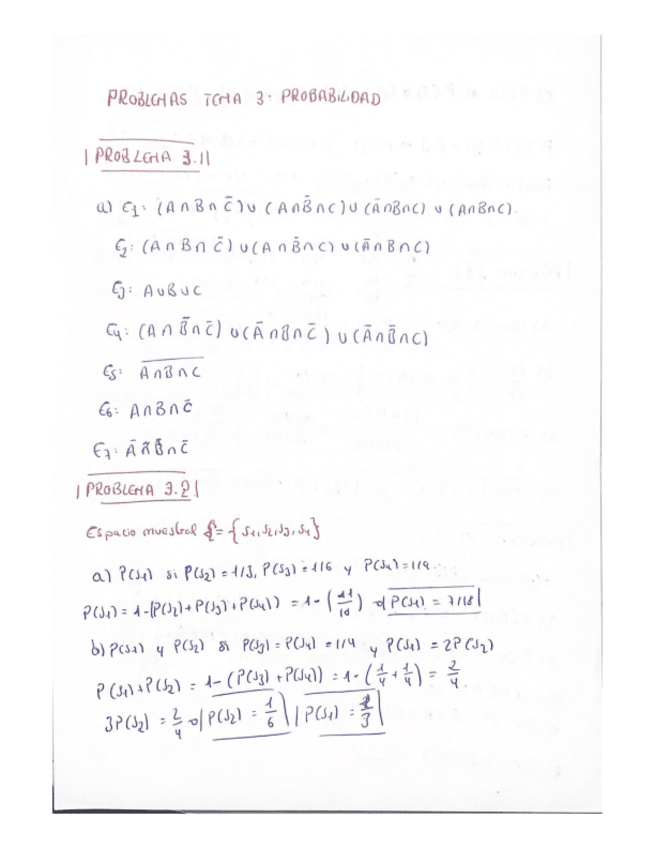 PROBLEMAS TEMA 3: PROBABILIDAD
PROBLEMA 3.1
a) E1: (A∩B∩C̄)∪(A∩B̄∩C)∪(Ā∩B∩C)∪(A∩B∩C).
E2: (A∩B∩C̄)∪(A∩B̄∩C)∪(Ā∩B∩C)
E3: A∪B∪C
E4: (A∩B̄∩C̄)∪(Ā∩B∩C̄)∪(Ā∩B̄∩C)
E5: \overline{A∩B∩C}
E6: A∩B∩C̄
E7: Ā∩B̄∩C̄
PROBLEMA 3.2
Espacio muestral = {S1,S2,S3,S4}
a) P(S1) si P(S2)=1/3, P(S3)=1/6 y P(S4)=1/9.
P(S1)=1-(P(S2)+P(S3)+P(S4)) = 1-(11/18) → P(S1)=7/18
b) P(S1) y P(S2) si P(S3)=P(S4)=1/4 y P(S1)=2P(S2)
P(S1)+P(S2) = 1-(P(S3)+P(S4)) = 1-(1/4+1/4) = 2/4.
3P(S2) = 2/4 → P(S2) = 1/6 P(S1) = 1/3